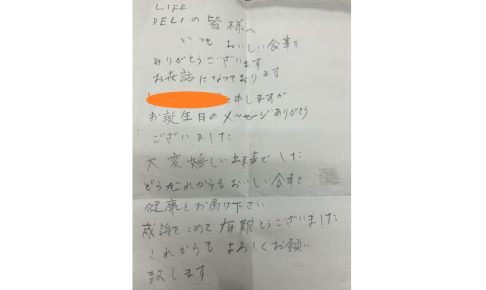 LIFE
DELIの皆様へ
いつもおいしい食事を
ありがとうございます
お世話になっております
と申しますが
お誕生日のメッセージありがとう
ございました
大変嬉しい出来事でした
どうかこれからもおいしい食事と
健康をお届け下さい
感謝をこめて有難とうございました
これからもよろしくお願い
致します